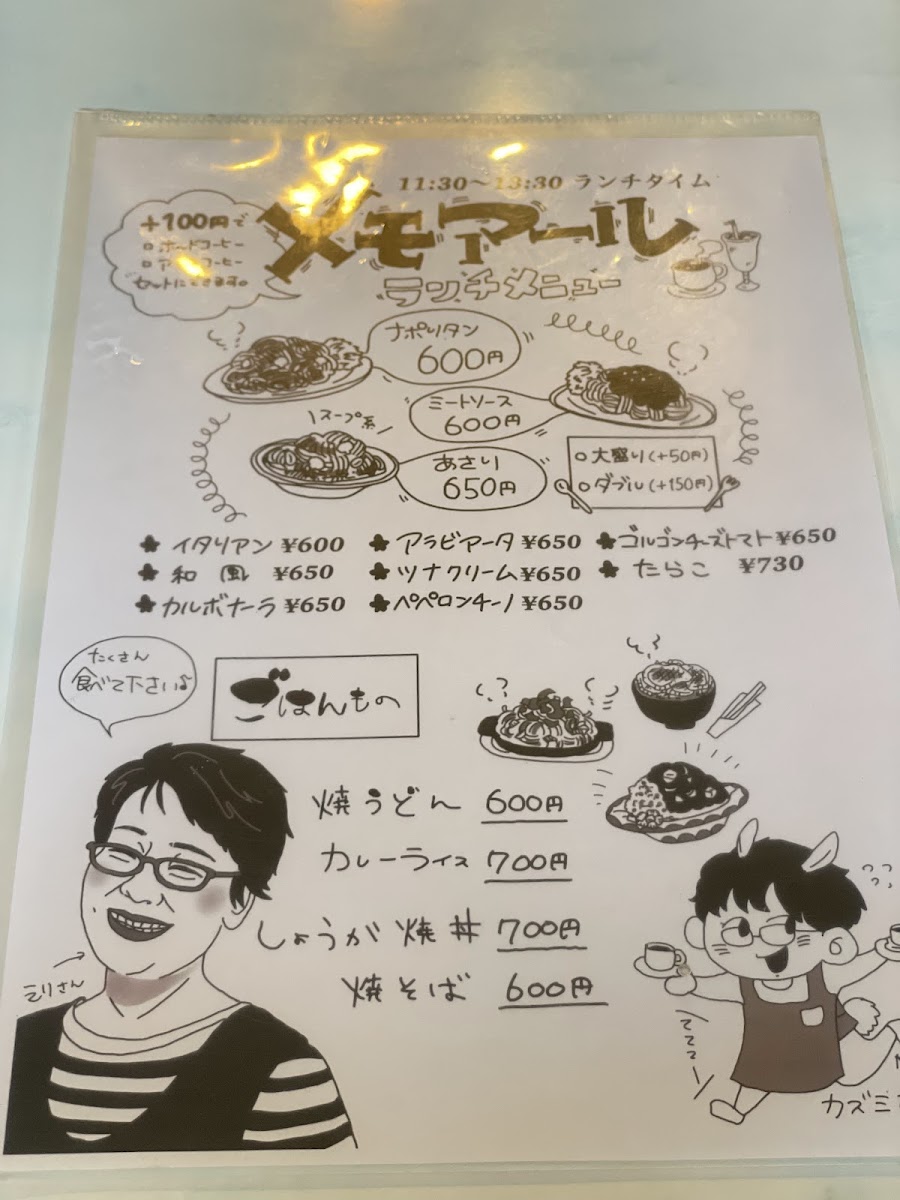 11:30～13:30 ランチタイム
+100円で
ホットコーヒー
セットにできます。
メモアール
ランチメニュー
ナポリタン
600円
ミートソース
600円
\スープ系/
あさり
650円
○大盛り(+50円)
○ダブル(+150円)
イタリアン ¥600 アラビアータ ¥650 ゴルゴンチーズトマト ¥650
和風 ¥650 ツナクリーム ¥650 たらこ ¥730
カルボナーラ ¥650 ペペロンチーノ ¥650
たくさん
食べて下さい♪
ごはんもの
焼うどん 600円
カレーライス 700円
しょうが焼丼 700円
焼そば 600円
ミリさん
ててて
カズミ